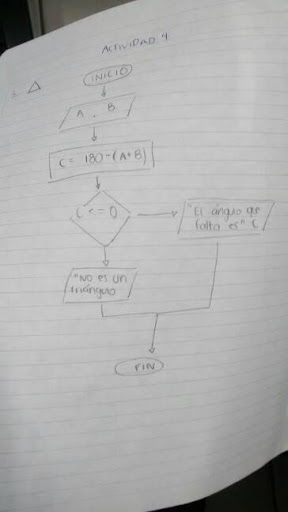 ACTIVIDAD 4
INICIO
A, B
C = 180-(A+B)
C <= 0
"El ángulo que
falta es" C
"No es un
triángulo
FIN